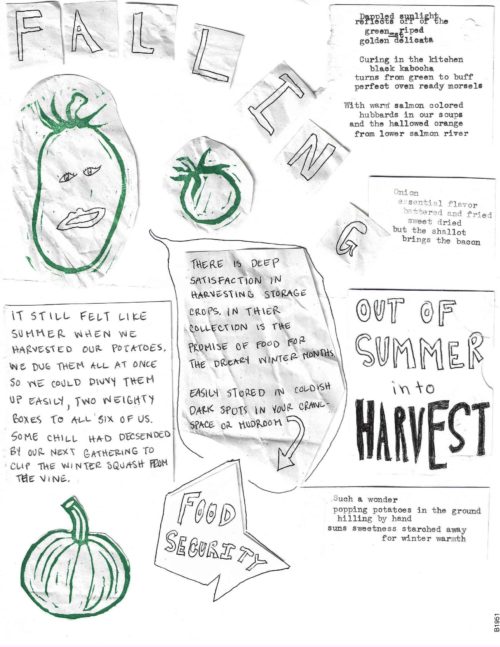 FALLING
Dappled sunlight
reflects off of the
green striped
golden delicata
Curing in the kitchen
black kabocha
turns from green to buff
perfect oven ready morsels
With warm salmon colored
hubbards in our soups
and the hallowed orange
from lower salmon river
Onion
essential flavor
battered and fried
sweet dried
but the shallot
brings the bacon
THERE IS DEEP
SATISFACTION IN
HARVESTING STORAGE
CROPS. IN THIER
COLLECTION IS THE
PROMISE OF FOOD FOR
THE DREARY WINTER MONTHS
EASILY STORED IN COLDISH
DARK SPOTS IN YOUR CRAWL-
SPACE OR MUDROOM
IT STILL FELT LIKE
SUMMER WHEN WE
HARVESTED OUR POTATOES.
WE DUG THEM ALL AT ONCE
SO WE COULD DIVVY THEM
UP EASILY, TWO WEIGHTY
BOXES TO ALL SIX OF US.
SOME CHILL HAD DECSENDED
BY OUR NEXT GATHERING TO
CLIP THE WINTER SQUASH FROM
THE VINE.
OUT OF
SUMMER
into
HARVEST
FOOD
SECURITY
Such a wonder
popping potatoes in the ground
hilling by hand
suns sweetness starched away
for winter warmth
B1951